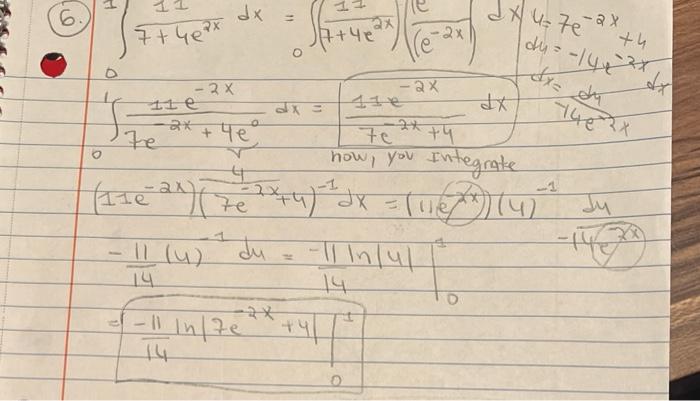 6. ∫₀¹ 11/(7+4e^2x) dx = ∫₀ (11/(7+4e^2x)) (e/(e^-2x)) dx
u = 7e^-2x + 4
du = -14e^-2x dx
dx = du/-14e^-2x
∫₀¹ 11e^-2x/(7e^-2x + 4e⁰) dx = 11e^-2x/(7e^-2x + 4) dx
4
now, you integrate
(11e^-2x)(7e^-2x + 4)^-1 dx = (11e^-2x)(u)^-1 du/-14e^-2x
-11/14 (u)^-1 du = -11/14 ln|u| |₀¹
= -11/14 ln|7e^-2x + 4| |₀¹